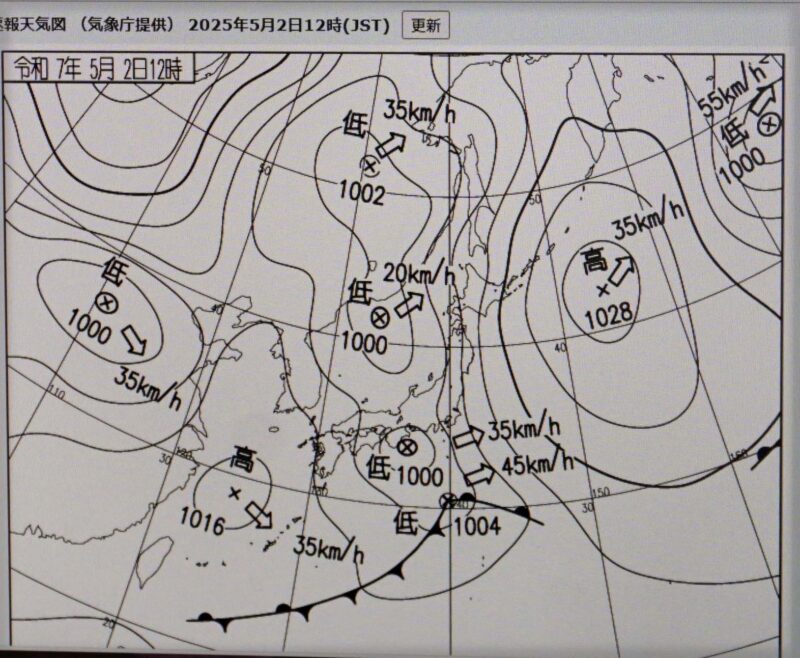 報天気図 (気象庁提供) 2025年5月2日12時(JST) 更新
令和 7年 5月 2日12時
低 35km/h
1002
55km/h
低
1000
50
50
35km/h
高
1028
低
1000
35km/h
20km/h
低
1000
40
40
110
35km/h
低 1000
45km/h
120
30
高
1016
35km/h
130
低 1004
140
150
30
160
20